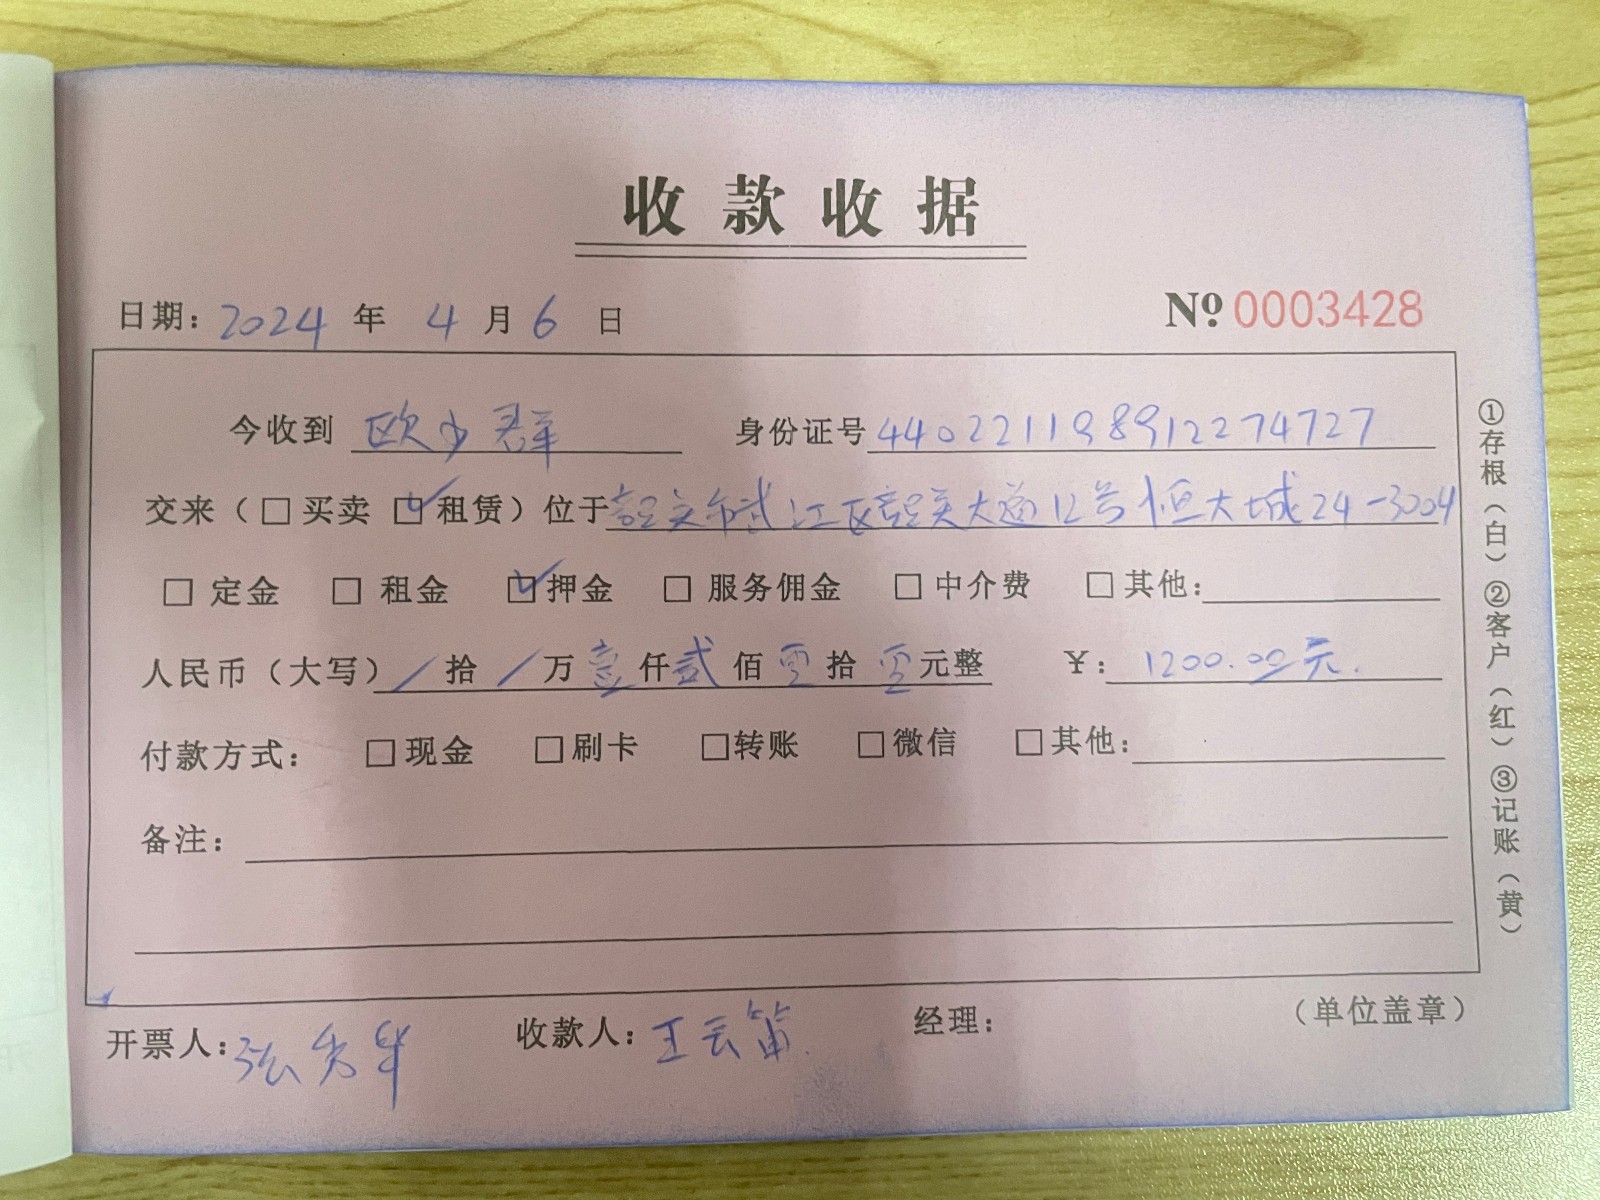 收款收据
日期：2024年 4月 6日 Nº 0003428
今收到 欧少群 身份证号 440221198912274727
交来（□买卖 ☑租赁）位于韶关市武江区韶关大道12号恒大城24-3004
□定金 □租金 ☑押金 □服务佣金 □中介费 □其他：
人民币（大写）/拾/万壹仟贰佰零拾零元整 ¥：1200.00元.
付款方式： □现金 □刷卡 □转账 □微信 □其他：
备注：
开票人：张 华 收款人：王云笛 经理： （单位盖章）
①存根（白）②客户（红）③记账（黄）